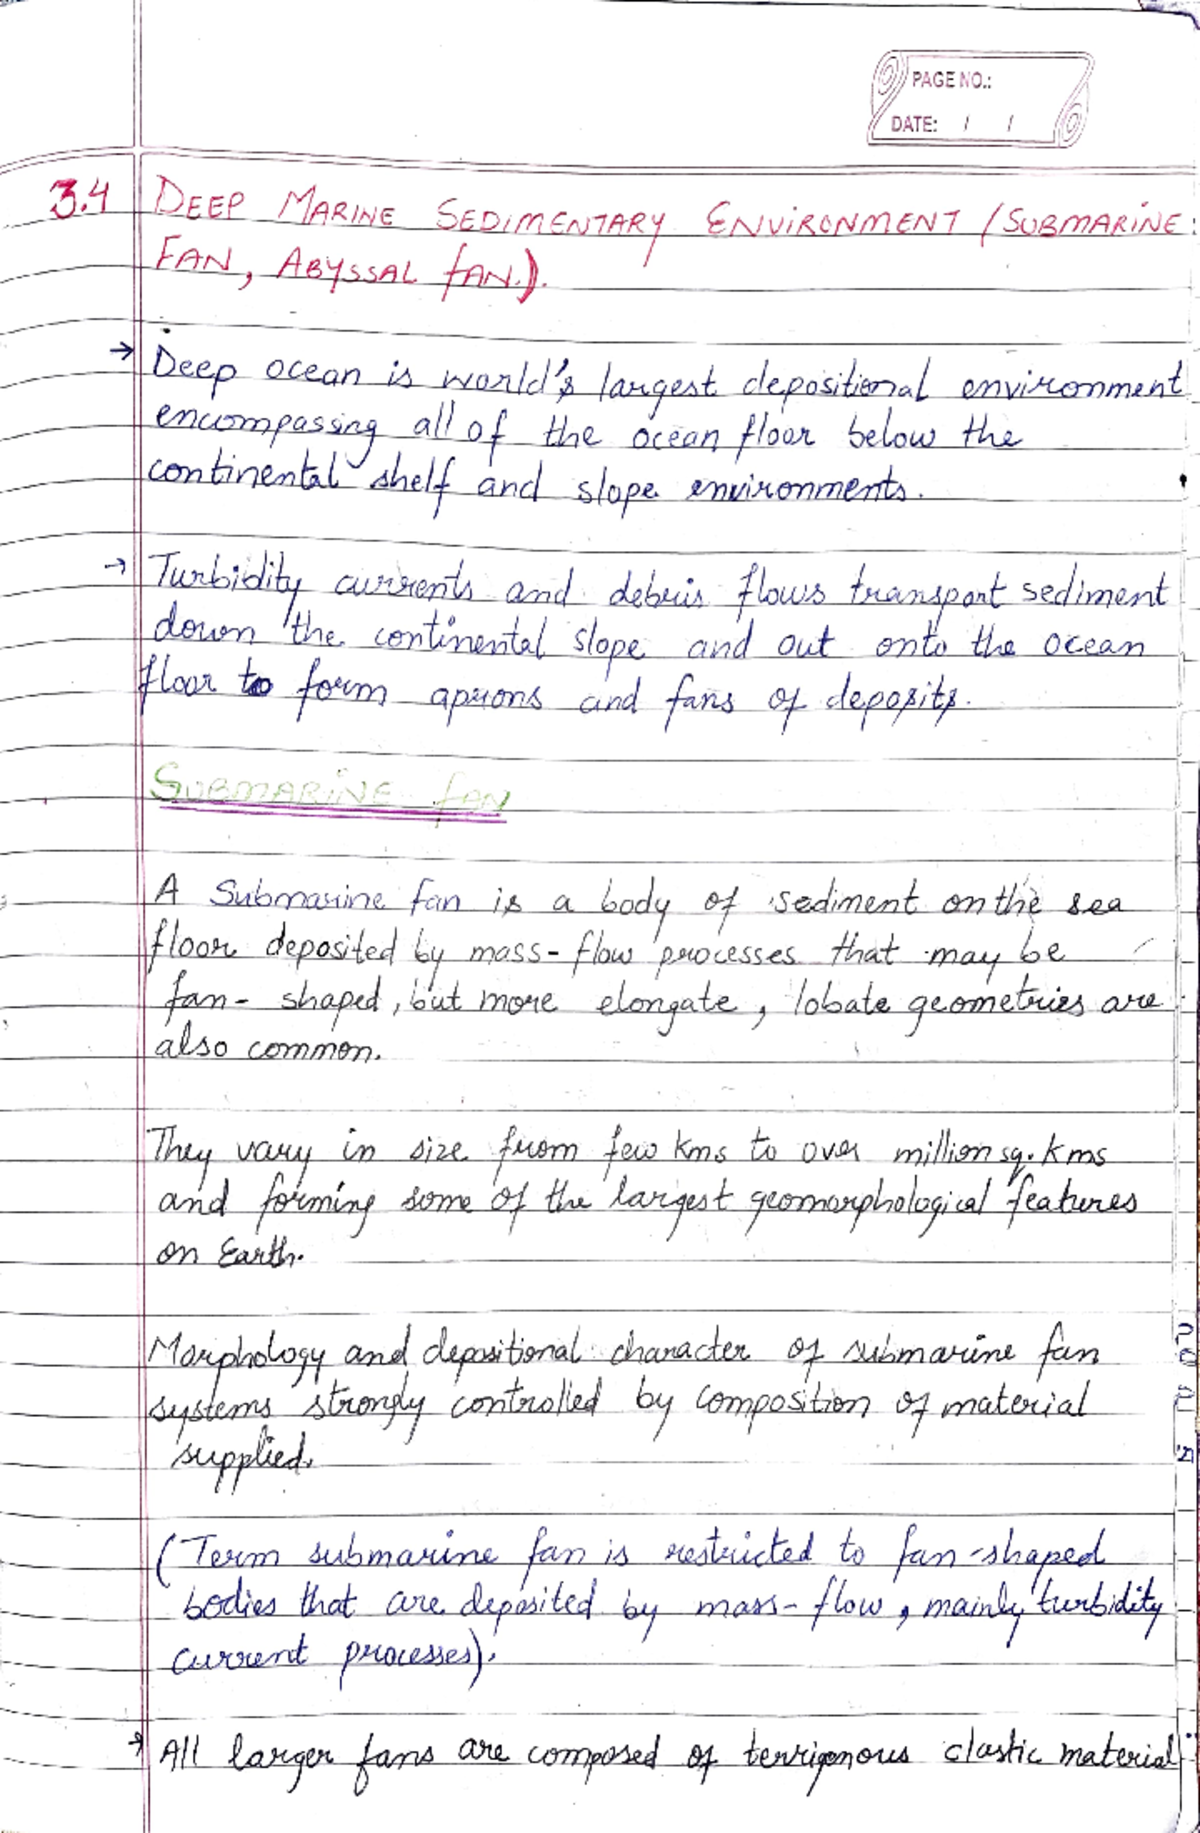 PAGE NO.:
DATE: / /
3.4 DEEP MARINE SEDIMENTARY ENVIRONMENT (SUBMARINE
FAN, ABYSSAL FAN.).
→ Deep ocean is world's largest depositional environment
encompassing all of the ocean floor below the
continental shelf and slope environments.
→ Turbidity currents and debris flows transport sediment
down the continental slope and out onto the ocean
floor to form aprons and fans of deposits.
SUBMARINE FAN
A Submarine fan is a body of sediment on the sea
floor deposited by mass-flow processes that may be
fan-shaped, but more elongate, lobate geometries are
also common.
They vary in size from few kms to over million sq. kms
and forming some of the largest geomorphological features
on Earth.
Morphology and depositional character of submarine fan
systems strongly controlled by composition of material
supplied.
(Term submarine fan is restricted to fan-shaped
bodies that are deposited by mass-flow, mainly turbidity
current processes).
→ All larger fans are composed of terrigenous clastic material